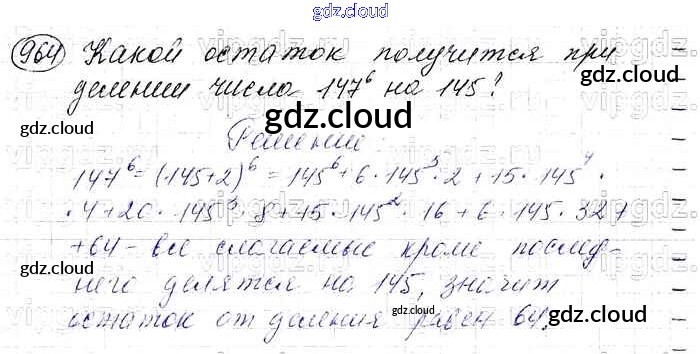 gdz.cloud
964 Какой остаток получится при
делении числа 147⁶ на 145?
gdz.cloud
gdz.cloud
gdz.cloud
Решение:
147⁶ = (145+2)⁶ = 145⁶ + 6 · 145⁵ · 2 + 15 · 145⁴ ·
· 4 + 20 · 145³ · 8 + 15 · 145² · 16 + 6 · 145 · 32 +
+ 64 – все слагаемые кроме послед-
gdz.cloud
gdz.cloud
него делятся на 145, значит
остаток от деления равен 64.
gdz.cloud